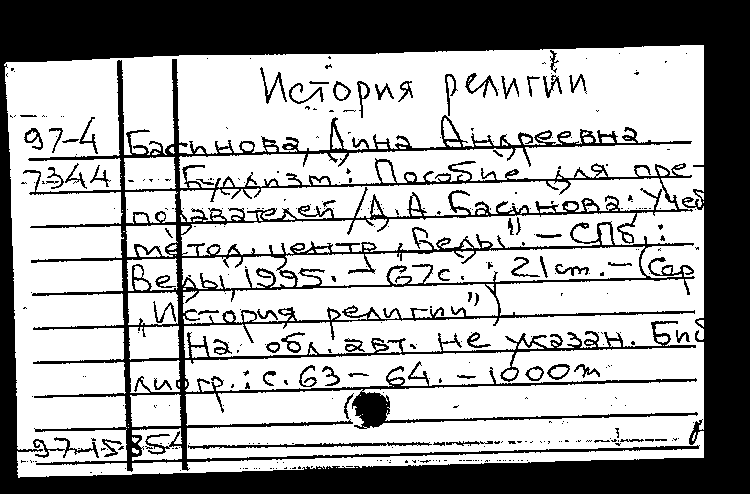 История религии
97-4 Басинова, Дина Андреевна.
7344 Буддизм: Пособие для пре-
подавателей / Д. А. Басинова; Учеб
метод. центр „Веды". - СПб.:
Веды, 1995. - 67с.; 21 cm. - (Сер
„История религии").
На обл. авт. не указан. Биб
лиогр.: с. 63-64. - 1000
97-15854